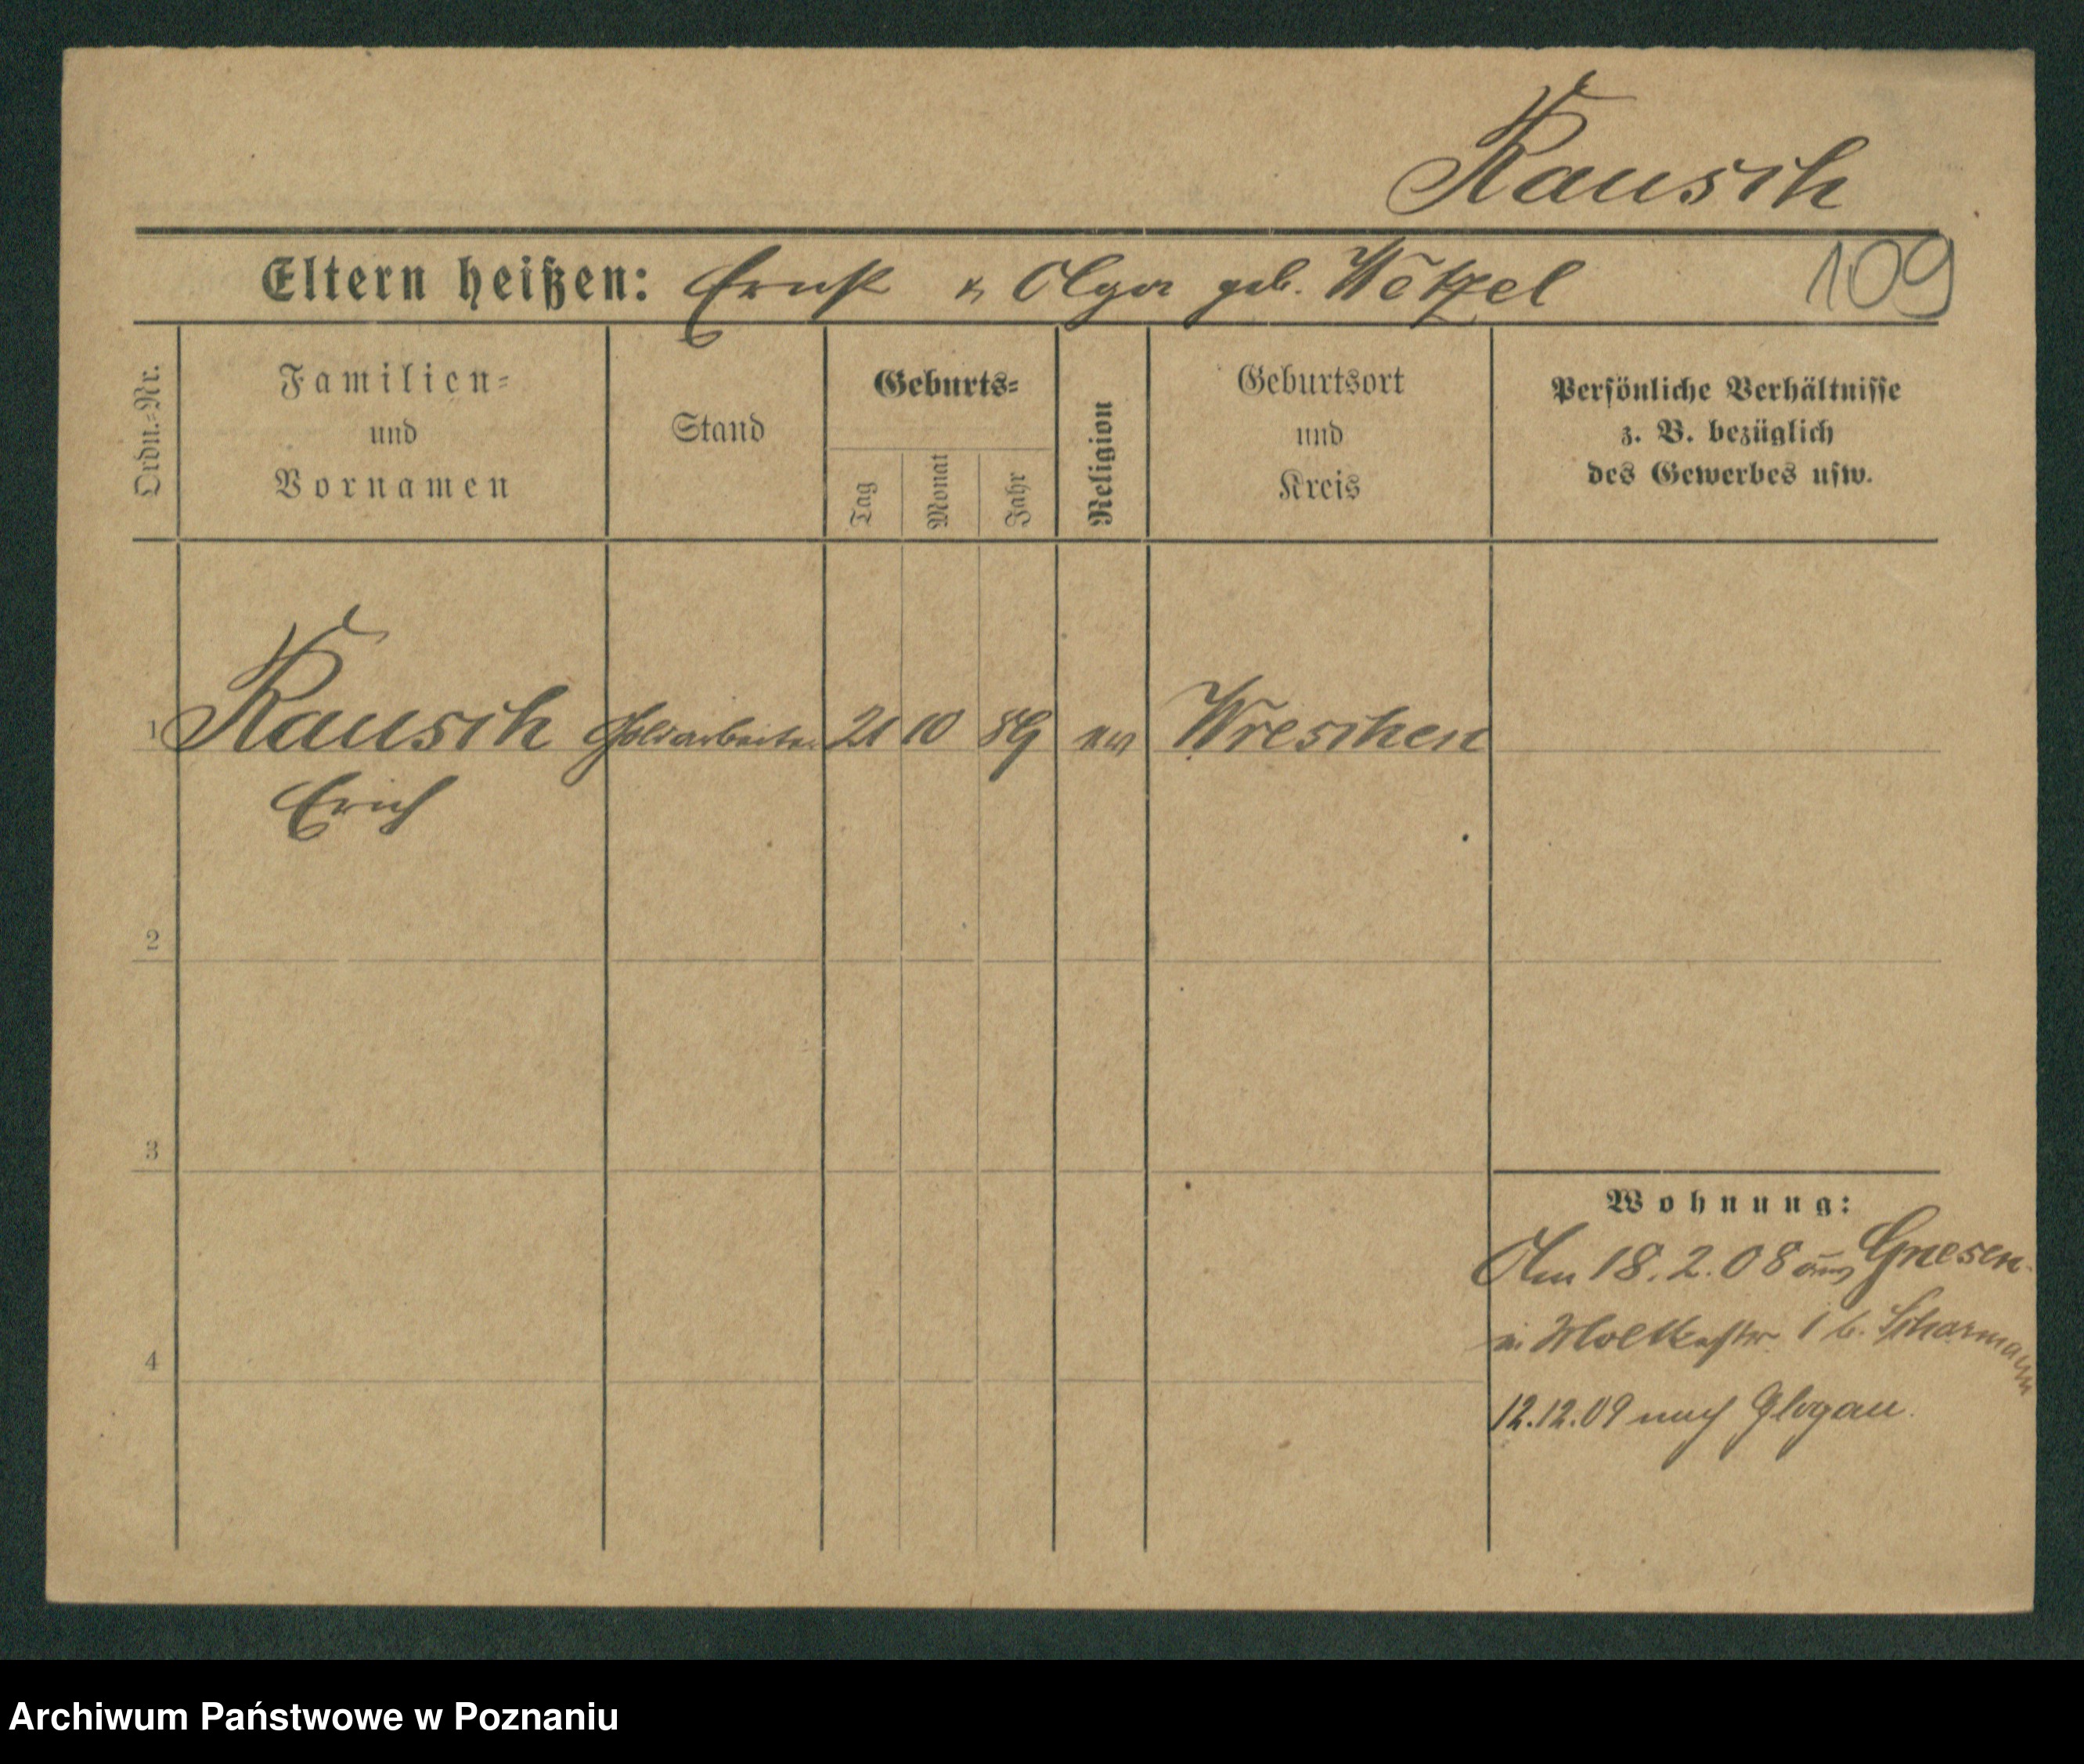 Rausch
Eltern heißen: Ernst u. Olga geb. Wetzel
109
Ordn.=Nr.
Familien=
und
Vornamen
Stand
Geburts=
Tag
Monat
Jahr
Religion
Geburtsort
und
Kreis
Persönliche Verhältnisse
z. B. bezüglich
des Gewerbes usw.
1 Rausch 21 10 89 Wreschen
Erich
2
3
4
Wohnung:
Am 18.2.08 aus Gnesen
in Moltkestr. 1 b. Scharmann
12.12.09 nach Glogau.
Archiwum Państwowe w Poznaniu